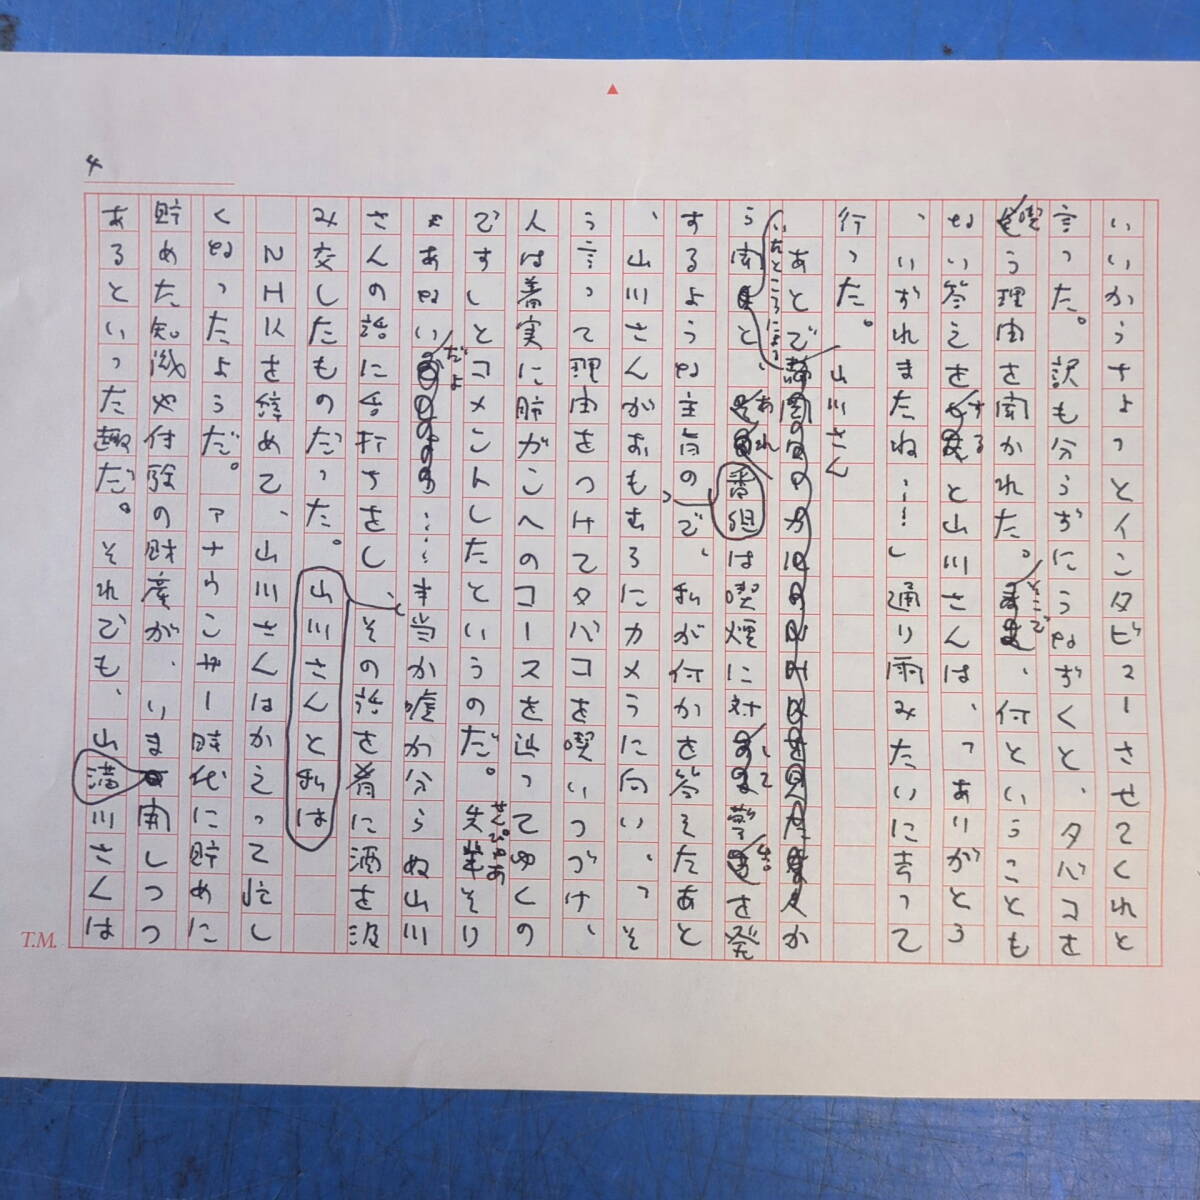 4
いいからちょっとインタビューさせてくれと
言った。訳も分らずにうなずくと、タバコを
喫う理由を聞かれた。そこで、何ということも
ない答えをすると山川さんは、「ありがとう
、いずれまたね……」通り雨みたいに去って
行った。
あとで山川さん
いたところによ
ると、あれ番組は喫煙に対して警告を発
するような主旨の、で、私が何かを答えたあと
、山川さんがおもむろにカメラに向い、「そ
う言って理由をつけてタバコを喫いつづけ、
人は着実に肺がんへのコースを辿ってゆくの
です」とコメントしたというのだ。失輩そり
ゃあないだよ……本当か嘘か分らぬ山川
さんの話に合打ちをし、その話を肴に酒を汲
み交したものだった。山川さんと私は
NHKを辞めて、山川さんはかえって忙し
くなったようだ。アナウンサー時代に貯めに
貯めた知識や付険の財産が、いま満開しつつ
あるといった趣だ。それでも、山川さんは
せんぱゃあ
T.M.